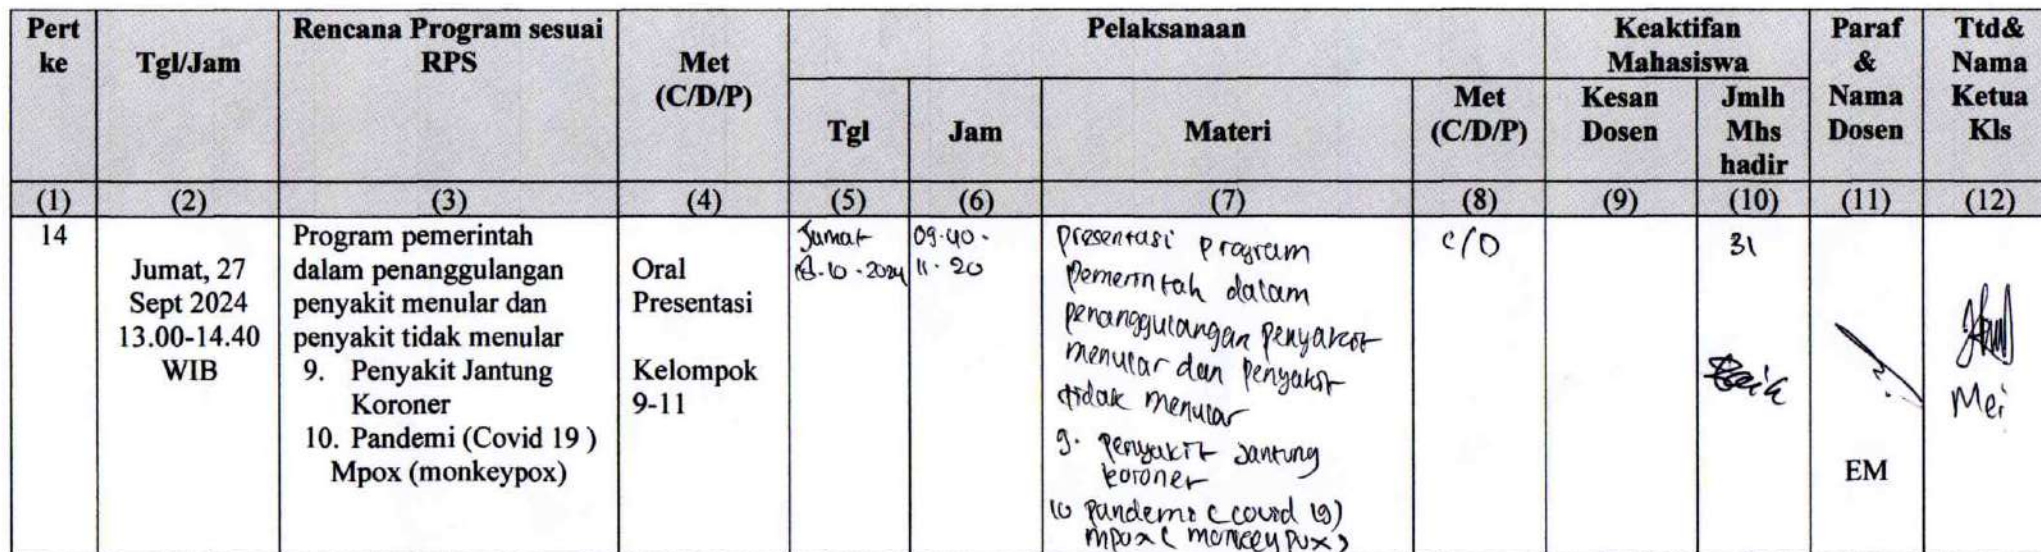 Pert ke
Tgl/Jam
Rencana Program sesuai RPS
Met (C/D/P)
Pelaksanaan
Keaktifan Mahasiswa
Paraf & Nama Dosen
Ttd& Nama Ketua Kls
Tgl
Jam
Materi
Met (C/D/P)
Kesan Dosen
Jmlh Mhs hadir
(1) (2) (3) (4) (5) (6) (7) (8) (9) (10) (11) (12)
14
Jumat, 27
Sept 2024
13.00-14.40
WIB
Program pemerintah
dalam penanggulangan
penyakit menular dan
penyakit tidak menular
9. Penyakit Jantung
Koroner
10. Pandemi (Covid 19 )
Mpox (monkeypox)
Oral
Presentasi
Kelompok
9-11
Jumat
-10-2024
09.40 -
11.20
presentasi program
pemerintah dalam
penanggulangan penyakit
menular dan penyakit
tidak menular
9. penyakit Jantung
koroner
10 pandemi (covid 19)
mpox (monkeypox)
C/D
31
EM
Mei